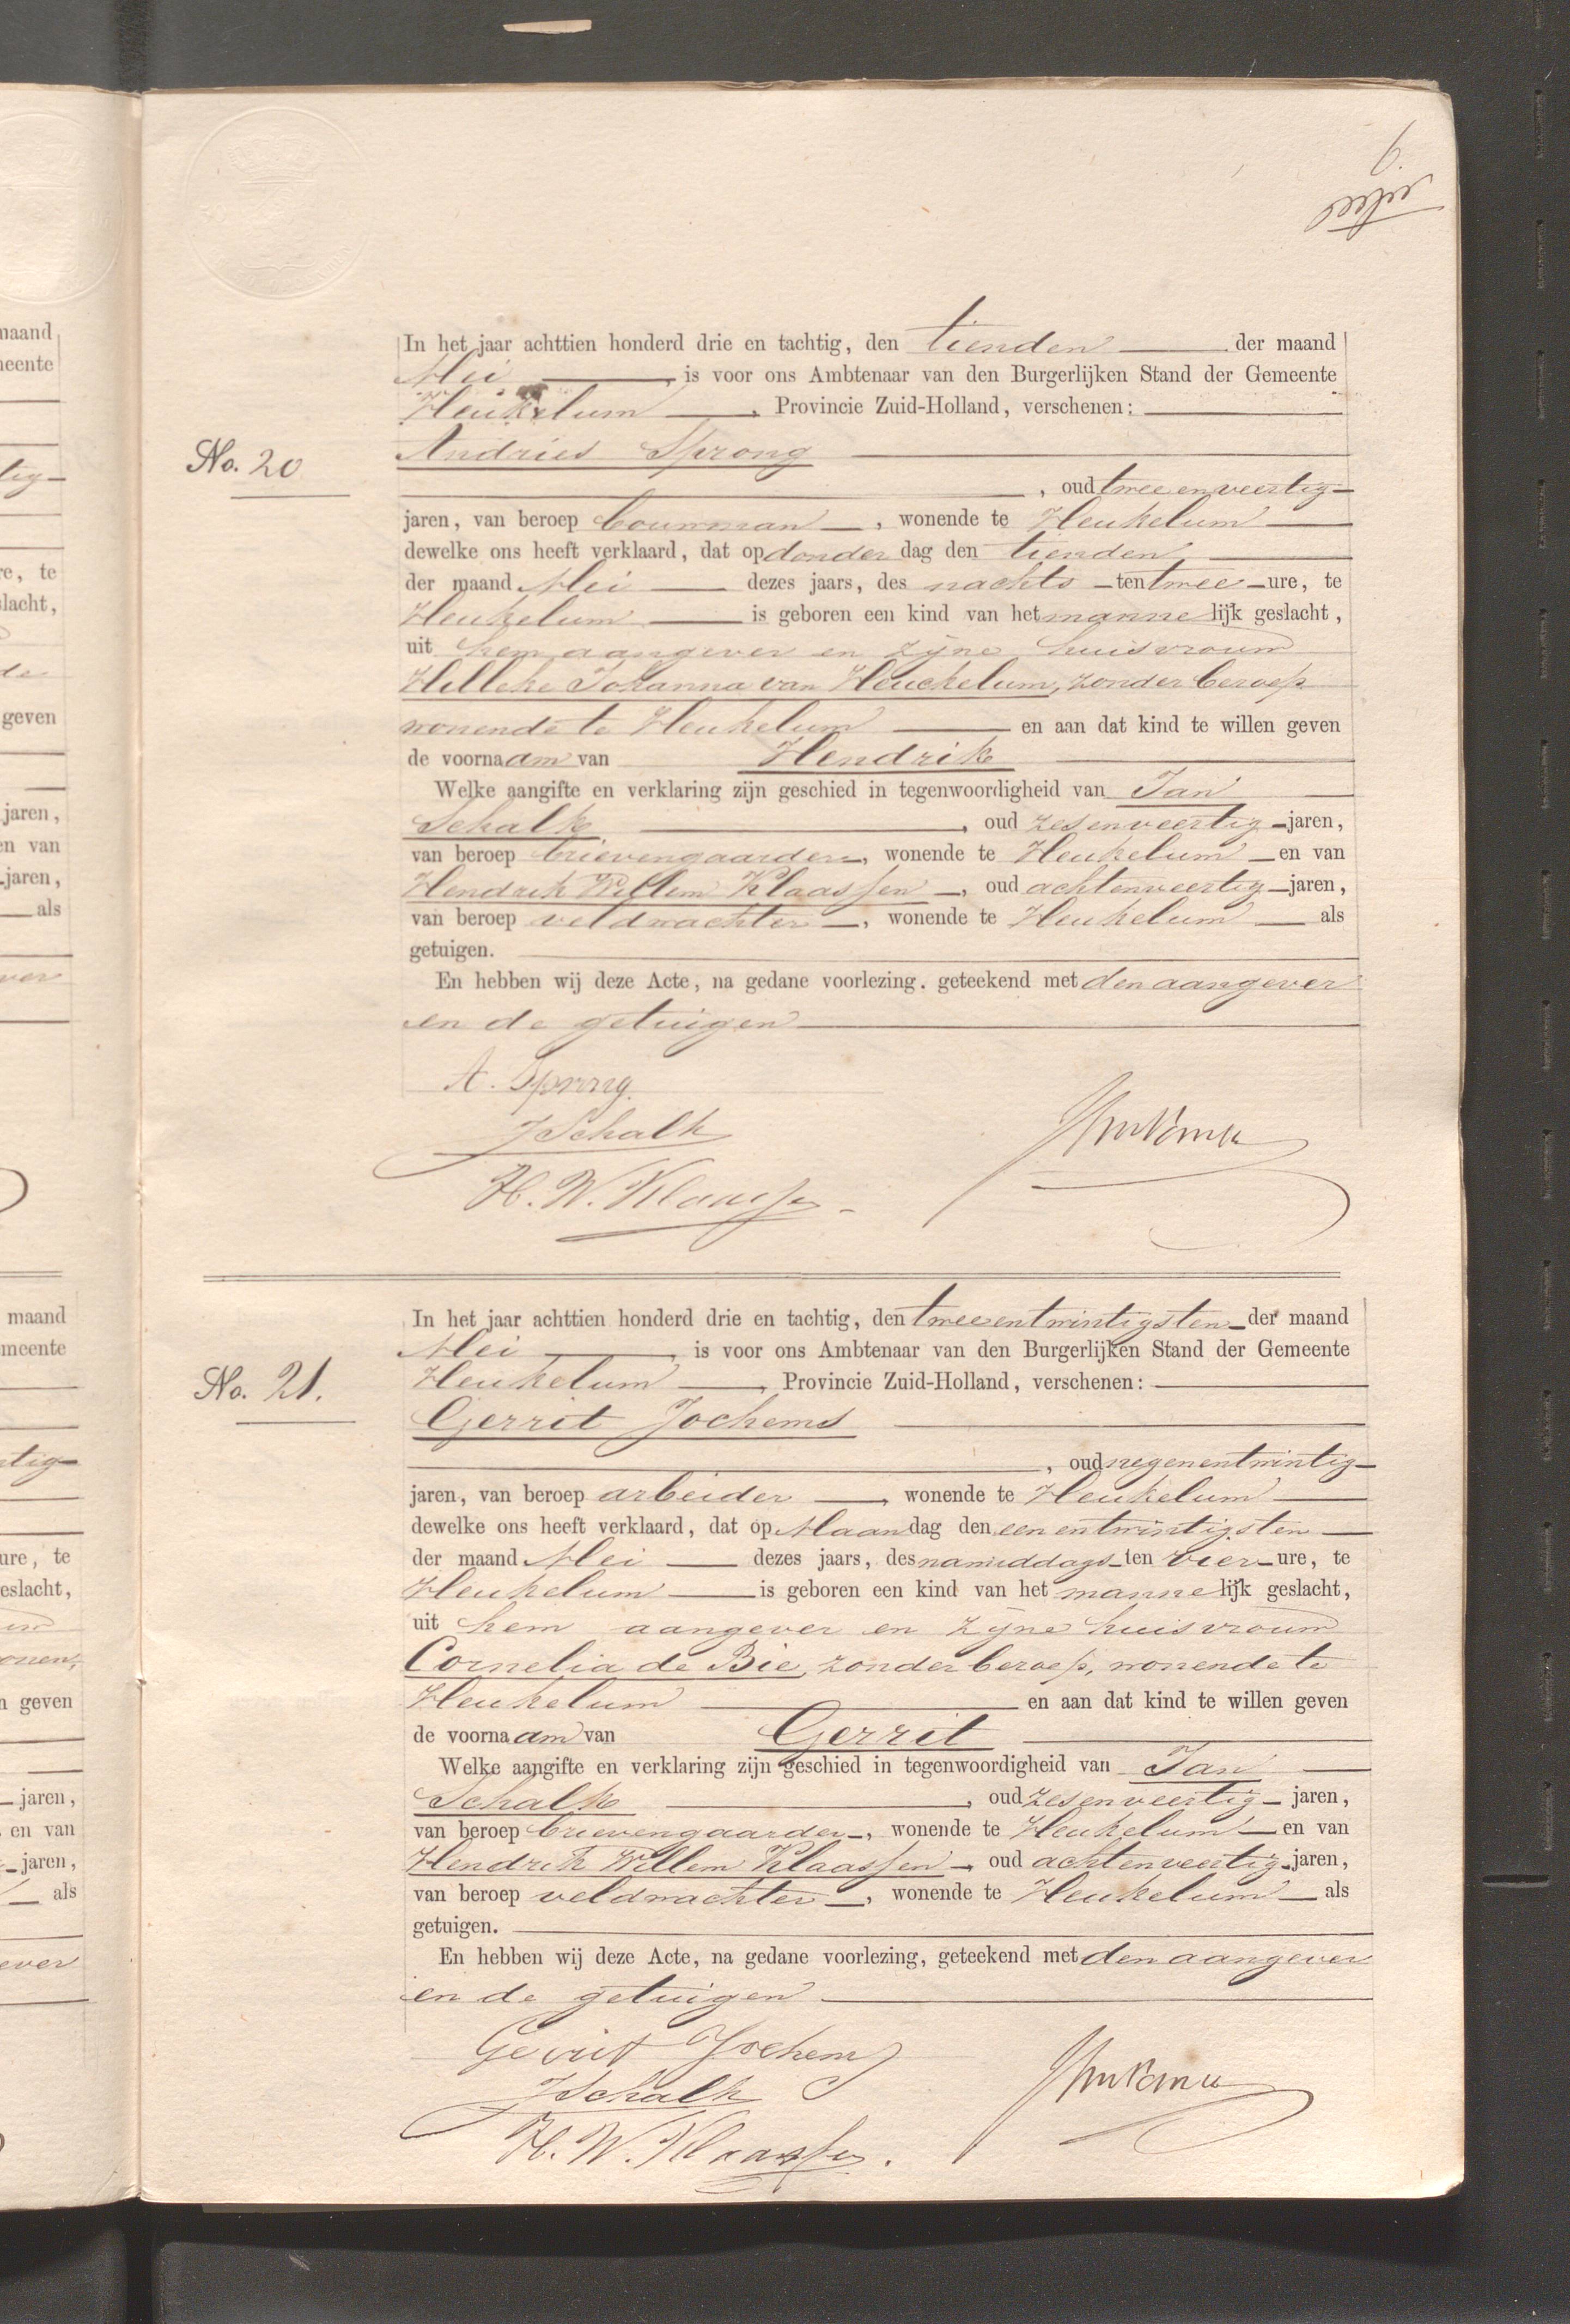 9
In het jaar achttien honderd drie en tachtig, den tienden der maand
Mei, is voor ons Ambtenaar van den Burgerlijken Stand der Gemeente
Heukelum, Provincie Zuid-Holland, verschenen:
No. 20
Andries Sprong
, oud twee en veertig
jaren, van beroep bouwman, wonende te Heukelum
dewelke ons heeft verklaard, dat op donderdag den tienden
der maand Mei dezes jaars, des nachts ten twee ure, te
Heukelum is geboren een kind van het mannelijk geslacht,
uit hem aangever en zijne huisvrouw
Helleke Johanna van Heuckelum, zonder beroep
wonende te Heukelum en aan dat kind te willen geven
de voornaam van Hendrik
Welke aangifte en verklaring zijn geschied in tegenwoordigheid van Jan
Schalk, oud zesenveertig jaren,
van beroep brievengaarder, wonende te Heukelum en van
Hendrik Willem Klaassen, oud achtenveertig jaren,
van beroep veldwachter, wonende te Heukelum als
getuigen.
En hebben wij deze Acte, na gedane voorlezing, geteekend met den aangever
en de getuigen
A. Sprong.
J Schalk
H. W. Klaassen
In het jaar achttien honderd drie en tachtig, den tweeentwintigsten der maand
Mei, is voor ons Ambtenaar van den Burgerlijken Stand der Gemeente
No. 21.
Heukelum, Provincie Zuid-Holland, verschenen:
Gerrit Jochems
, oud negenentwintig
jaren, van beroep arbeider, wonende te Heukelum
dewelke ons heeft verklaard, dat op Maandag den eenentwintigsten
der maand Mei dezes jaars, des namiddags ten vier ure, te
Heukelum is geboren een kind van het mannelijk geslacht,
uit hem aangever en zijne huisvrouw
Cornelia de Bie, zonder beroep, wonende te
Heukelum en aan dat kind te willen geven
de voornaam van Gerrit
Welke aangifte en verklaring zijn geschied in tegenwoordigheid van Jan
Schalk, oud zesenveertig jaren,
van beroep brievengaarder, wonende te Heukelum en van
Hendrik Willem Klaassen, oud achtenveertig jaren,
van beroep veldwachter, wonende te Heukelum als
getuigen.
En hebben wij deze Acte, na gedane voorlezing, geteekend met den aangever
en de getuigen
Gerrit Jochems
J Schalk
H. W. Klaassen.